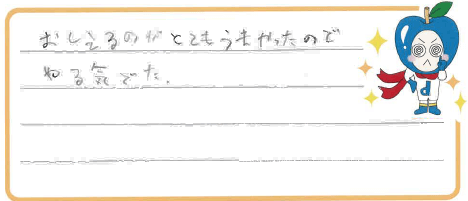 おしえるのがとてもうまかったので
やる気でた。